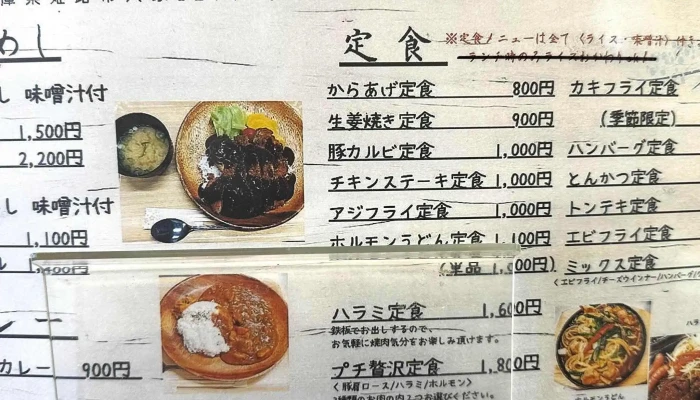 めし
し 味噌汁付
1,500円
2,200円
し 味噌汁付
1,100円
1,400円
カレー 900円
定食 ※定食メニューは全て〈ライス・味噌汁〉付き
からあげ定食 800円
生姜焼き定食 900円
豚カルビ定食 1,000円
チキンステーキ定食 1,000円
アジフライ定食 1,000円
ホルモンうどん定食 1,100円
(単品 1,000円)
ハラミ定食 1,600円
鉄板でお出しするので、
お気軽に焼肉気分をお楽しみ頂けます。
プチ贅沢定食 1,800円
〈豚肩ロース/ハラミ/ホルモン〉
3種類のお肉の内2つお選びください。
カキフライ定食
(季節限定)
ハンバーグ定食
とんかつ定食
トンテキ定食
エビフライ定食
ミックス定食
〈エビフライ/チーズウインナー/ハンバーグ/
ホルモンうどん